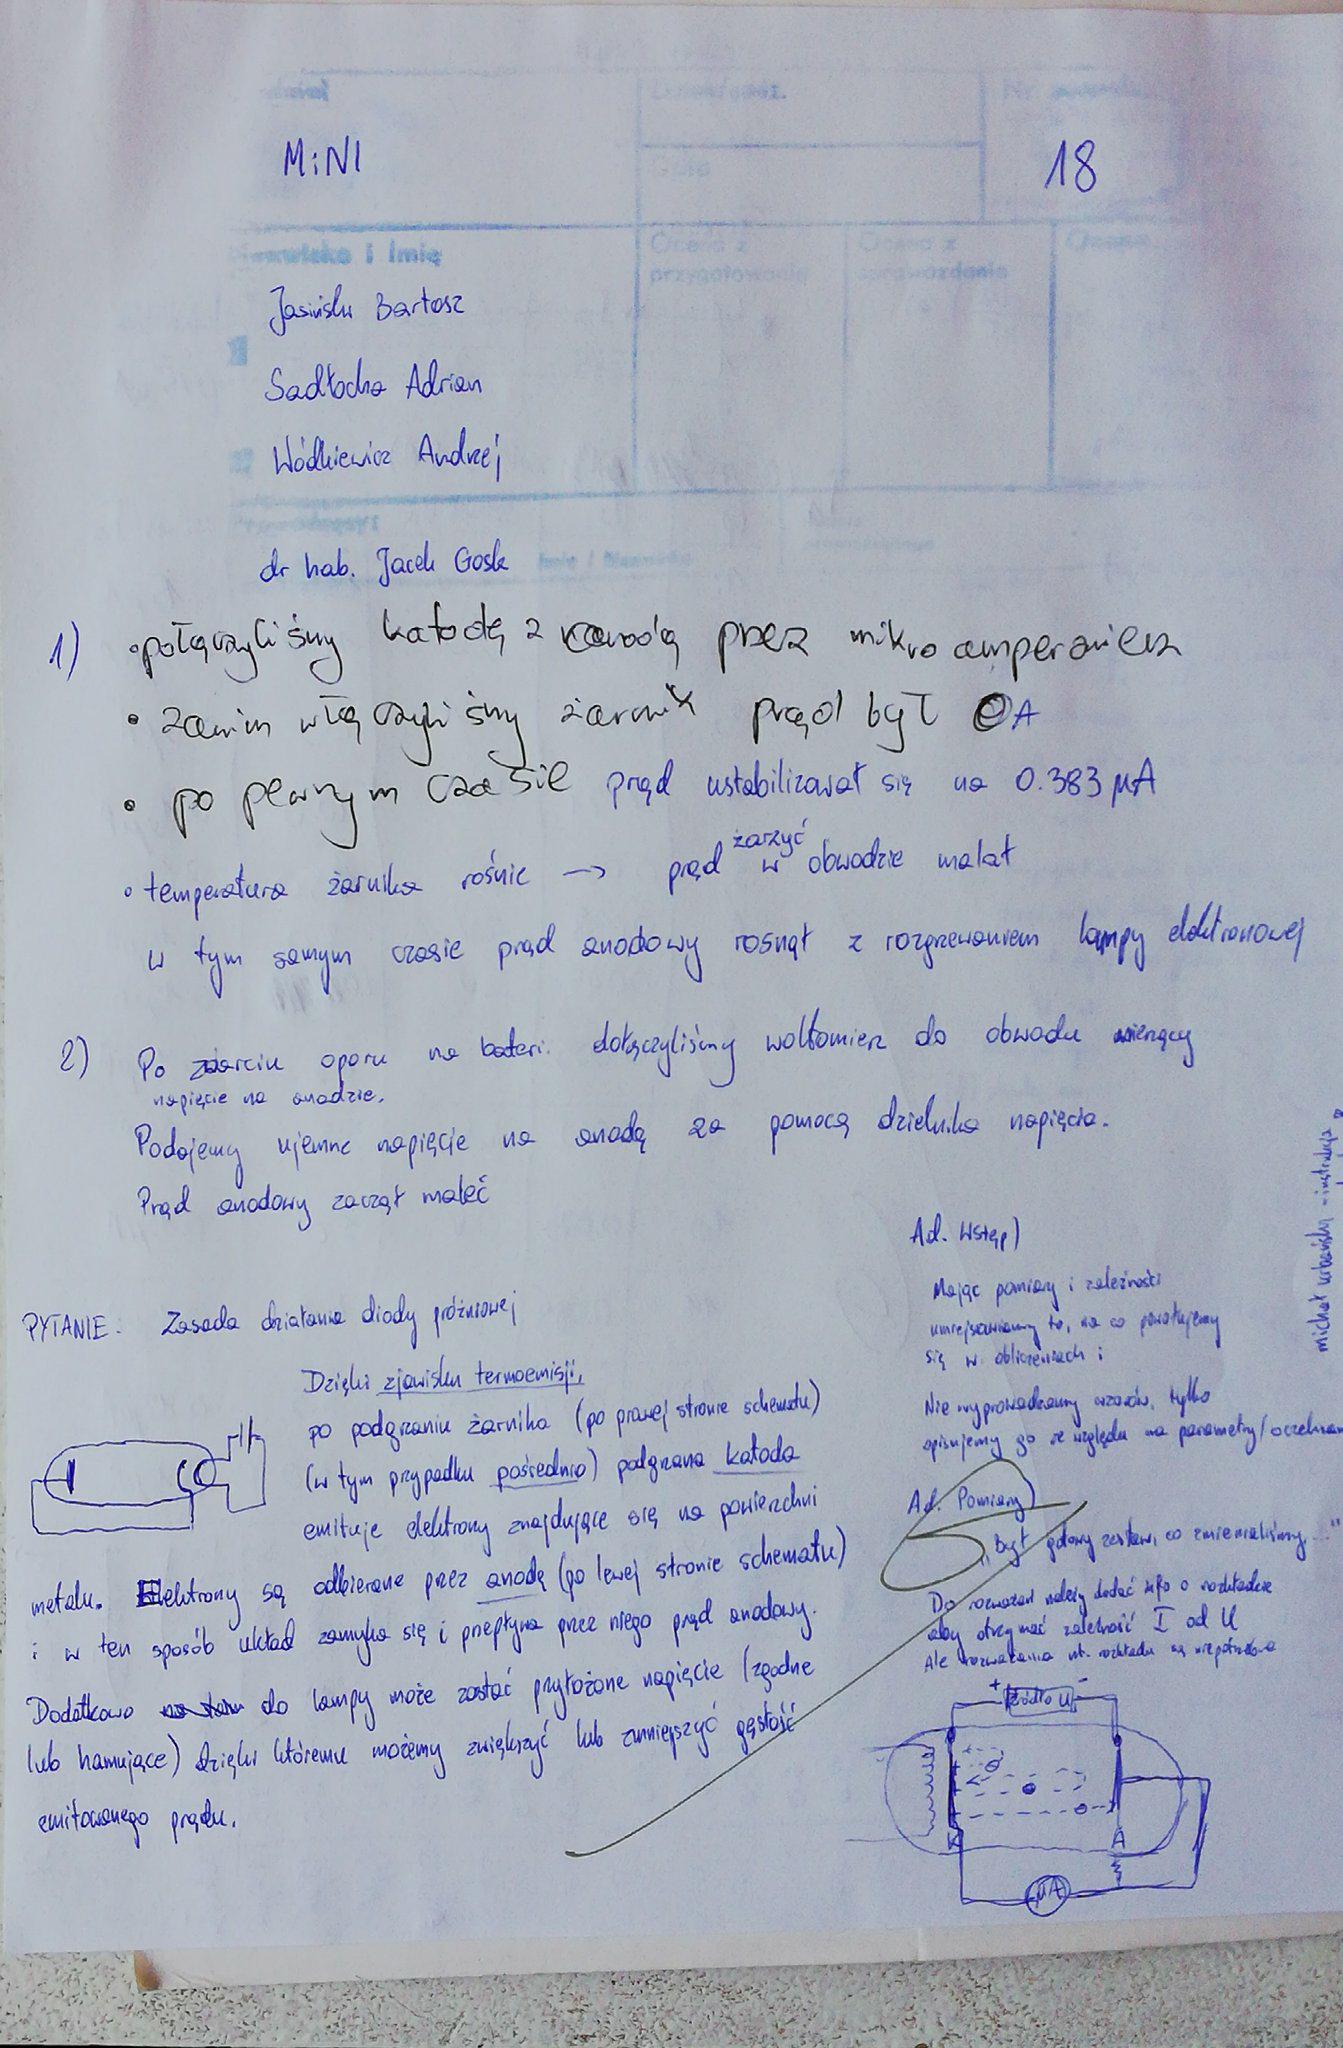 MiNI
18
Jasiński Bartosz
Sadłocha Adrian
Wódkiewicz Andrzej
dr hab. Jacek Gosk
1) • połączyliśmy katodę z anodą przez mikroamperomierz
• zanim włączyliśmy żarnik prąd był 0A
• po pewnym czasie prąd ustabilizował się na 0.383 μA
• temperatura żarnika rośnie → prąd żarzyć w obwodzie malał
w tym samym czasie prąd anodowy rosnął z rozgrzewaniem lampy elektronowej
2) Po oporu na baterii dołączyliśmy woltomierz do obwodu mierzący
napięcie na anodzie.
Podajemy ujemne napięcie na anodę za pomocą dzielnika napięcia.
Prąd anodowy zaczął maleć
PYTANIE: Zasada działania diody próżniowej
Dzięki zjawisku termoemisji,
po podgrzaniu żarnika (po prawej stronie schematu)
(w tym przypadku pośrednio) podgrzana katoda
emituje elektrony znajdujące się na powierzchni
metalu. Elektrony są odbierane przez anodę (po lewej stronie schematu)
i w ten sposób układ zamyka się i przepływa przez niego prąd anodowy.
Dodatkowo do lampy może zostać przyłożone napięcie (zgodne
lub hamujące) dzięki któremu możemy zwiększyć lub zmniejszyć gęstość
emitowanego prądu.
Ad. Wstęp)
Mając pomiary i zależności
umiejscawiamy to, na co powołujemy
się w obliczeniach i
Nie wyprowadzamy wzorów, tylko
opisujemy go ze względu na parametry/
Ad. Pomiary)
„Był gotowy zestaw, co zmienialiśmy..."
Do rozważań należy dodać info o rozkładzie
aby otrzymać zależność I od U
Ale rozważania nt. rozkładu są niepotrzebne
+ źródło U -
K
A
μA
michał urbański - instrukcja